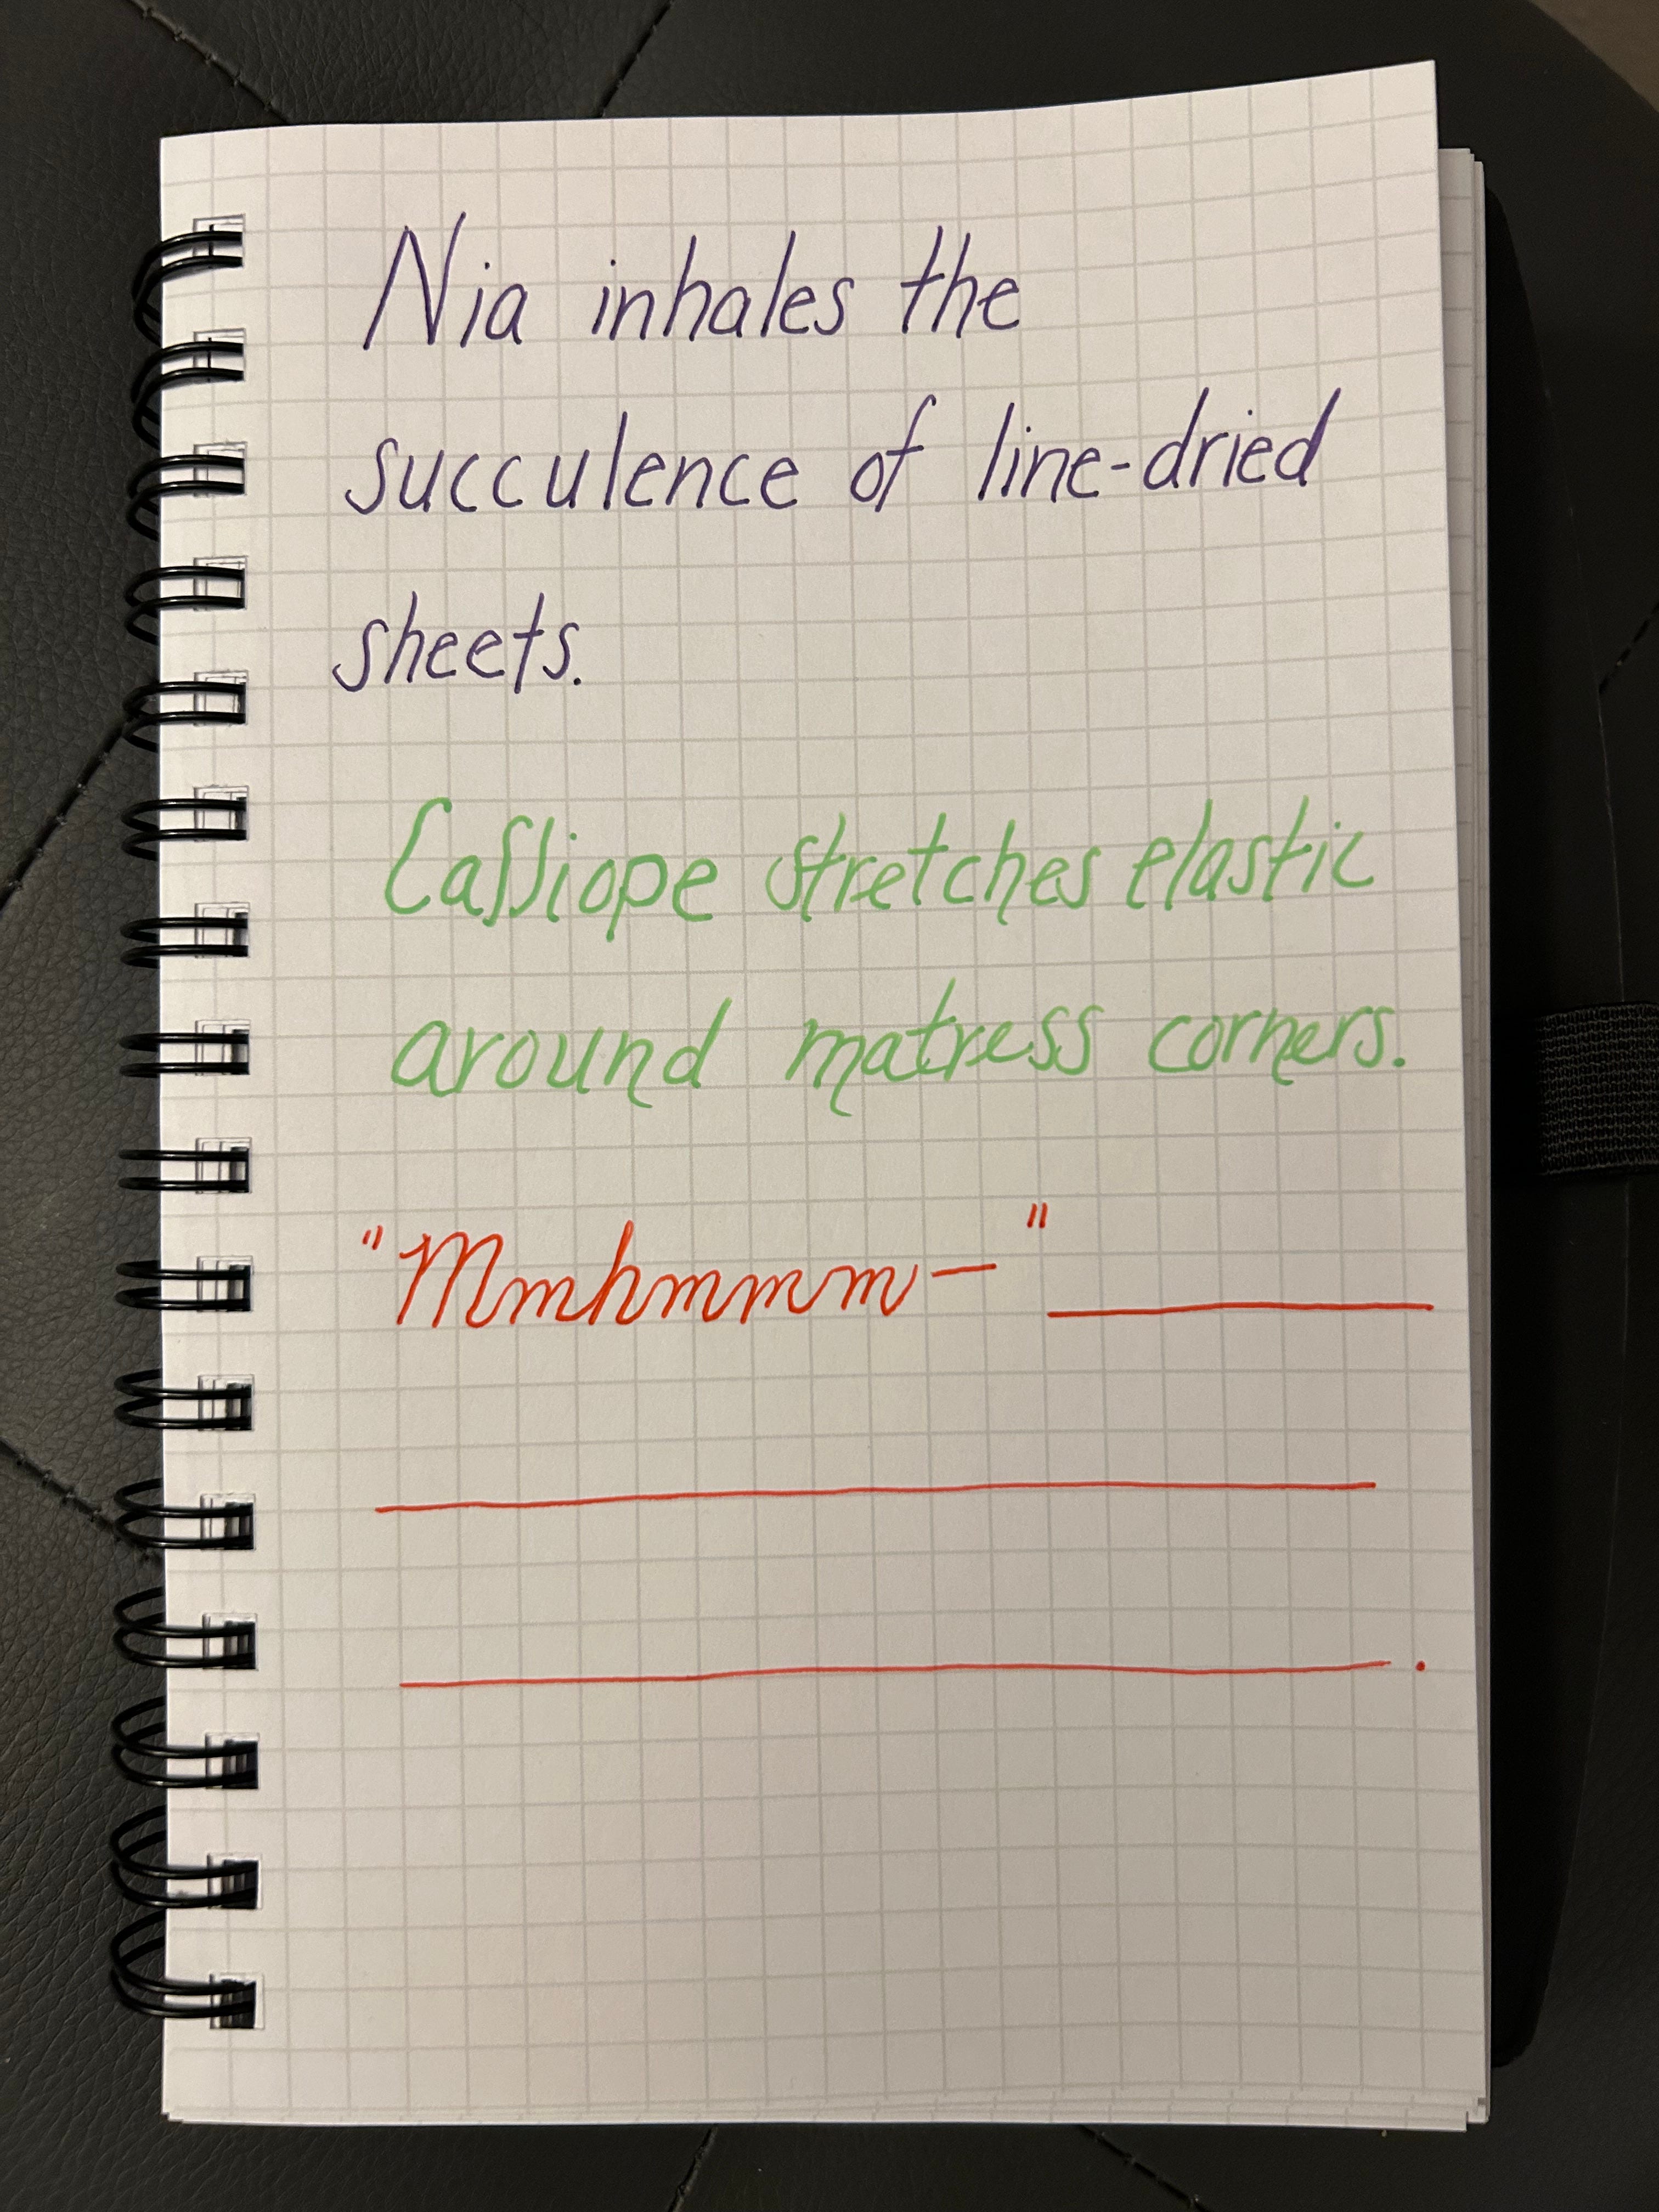 Nia inhales the
succulence of line-dried
sheets.
Calliope stretches elastic
around matress corners.
"Mmhmmm—" ________
____________________
____________________.